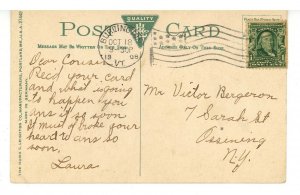 POST CARD
QUALITY
MESSAGE MAY BE WRITTEN ON THIS SIDE
ADDRESS ONLY ON THIS SIDE.
BURLINGTON
OCT 18
1908
VT.
Dear Cousin;
Recd your card
and what is going
to happen you
ans it so soon
It must of broke your
heart to ans so
soon.
Laura
Mr Victor Bergeron
7 Sarah St
Ossining
N.Y.